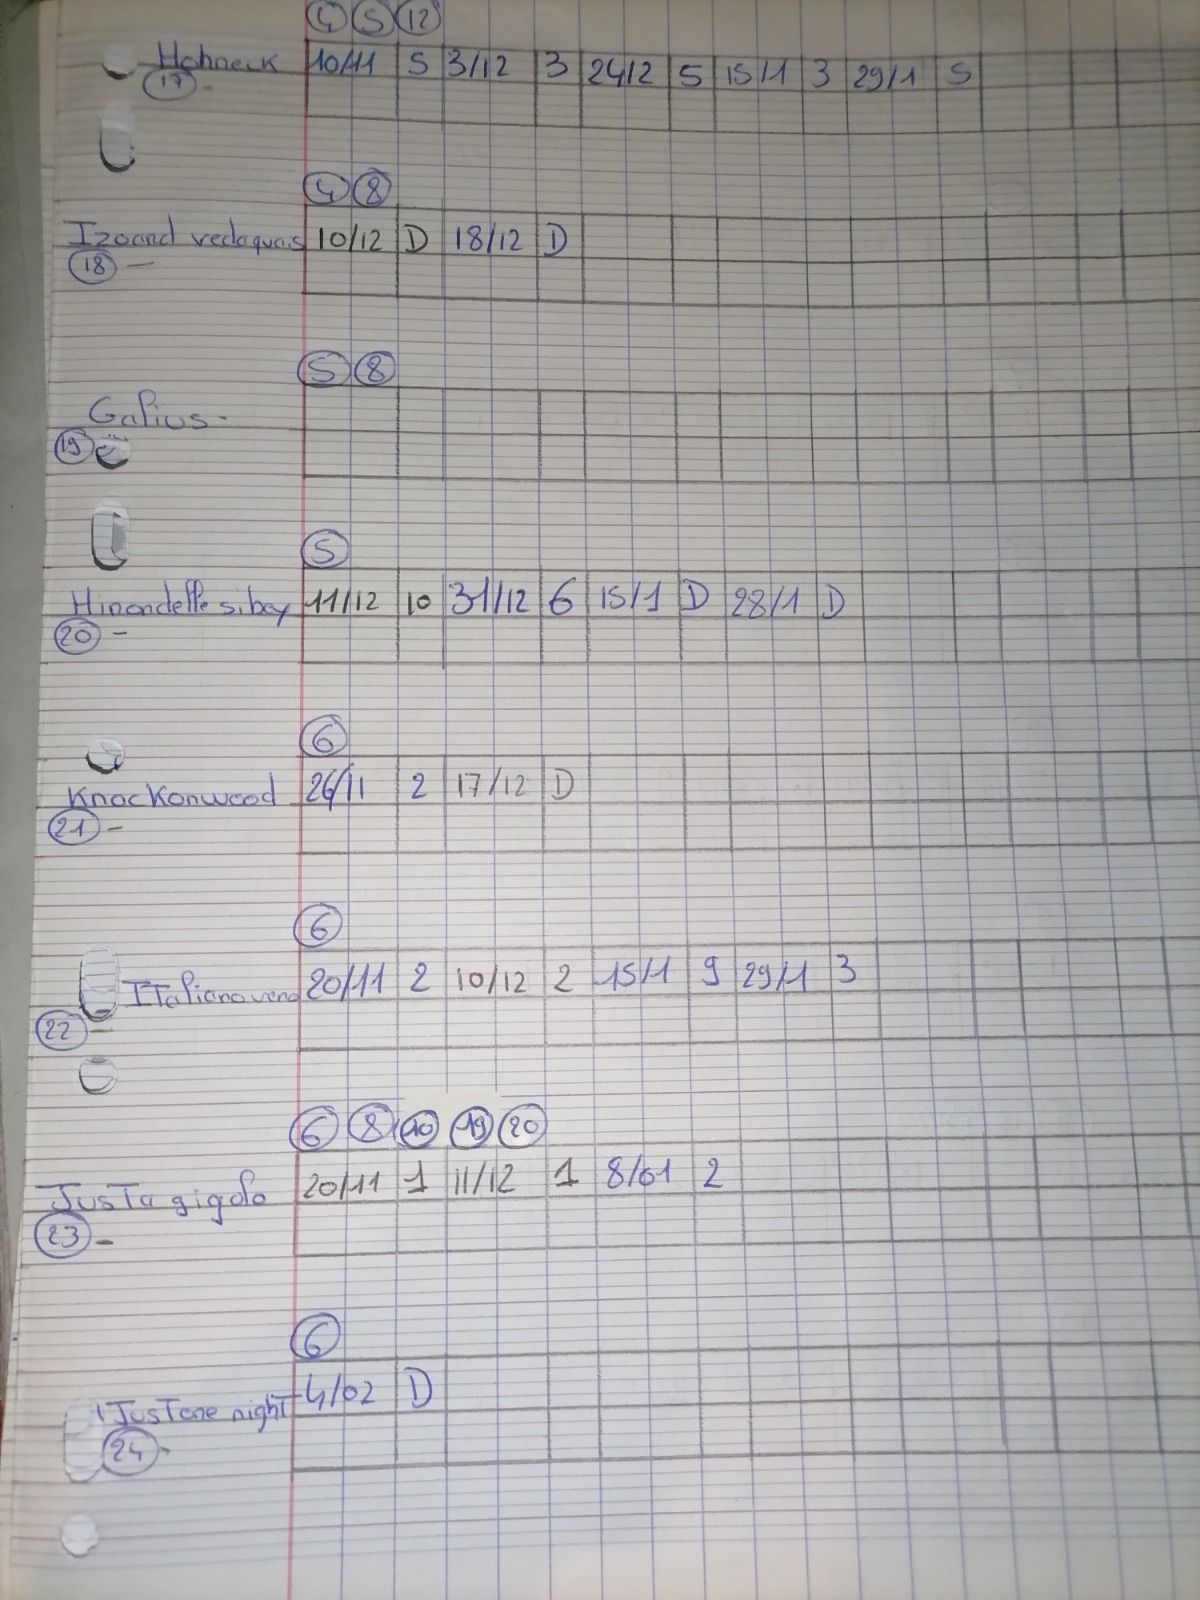 4 5 12
Hohneck 10/11 5 3/12 3 24/2 5 15/1 3 29/1 5
17 -
4 8
Izoard vedaquais 10/12 D 18/12 D
18 -
5 8
Galius -
19
5
Hirondelle sibey 11/12 10 31/12 6 15/1 D 28/1 D
20 -
6
Knockonwood 26/11 2 17/12 D
21 -
6
Italianovero 20/11 2 10/12 2 15/1 9 29/1 3
22 -
6 8 10 19 20
Justa gigolo 20/11 1 11/12 1 8/01 2
23 -
6
Justone night 4/02 D
24 -